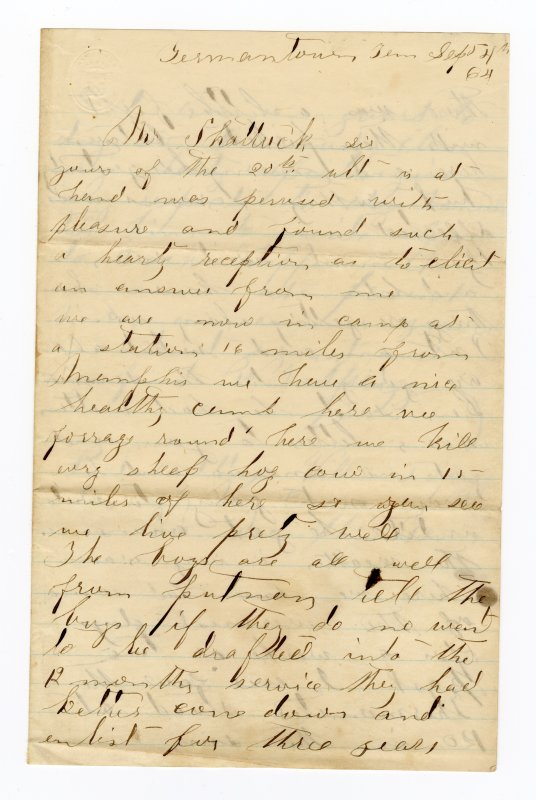 Germantown Ten Sept 11th
64
Mr Shattuck sir
yours of the 20th ult is at
hand was perused with
pleasure and found such
a hearty reception as to elicit
an answer from me
we are now in camp at
a station 16 miles from
Memphis we have a nice
healthy camb here we
forrage round here we kill
evry sheep hog cow in 15
miles of here so you see
we live prety well
The boys are all well
from putnam tell the
boys if they do no want
to be drafted into the
12 months service they had
better come down and
enlist for three years